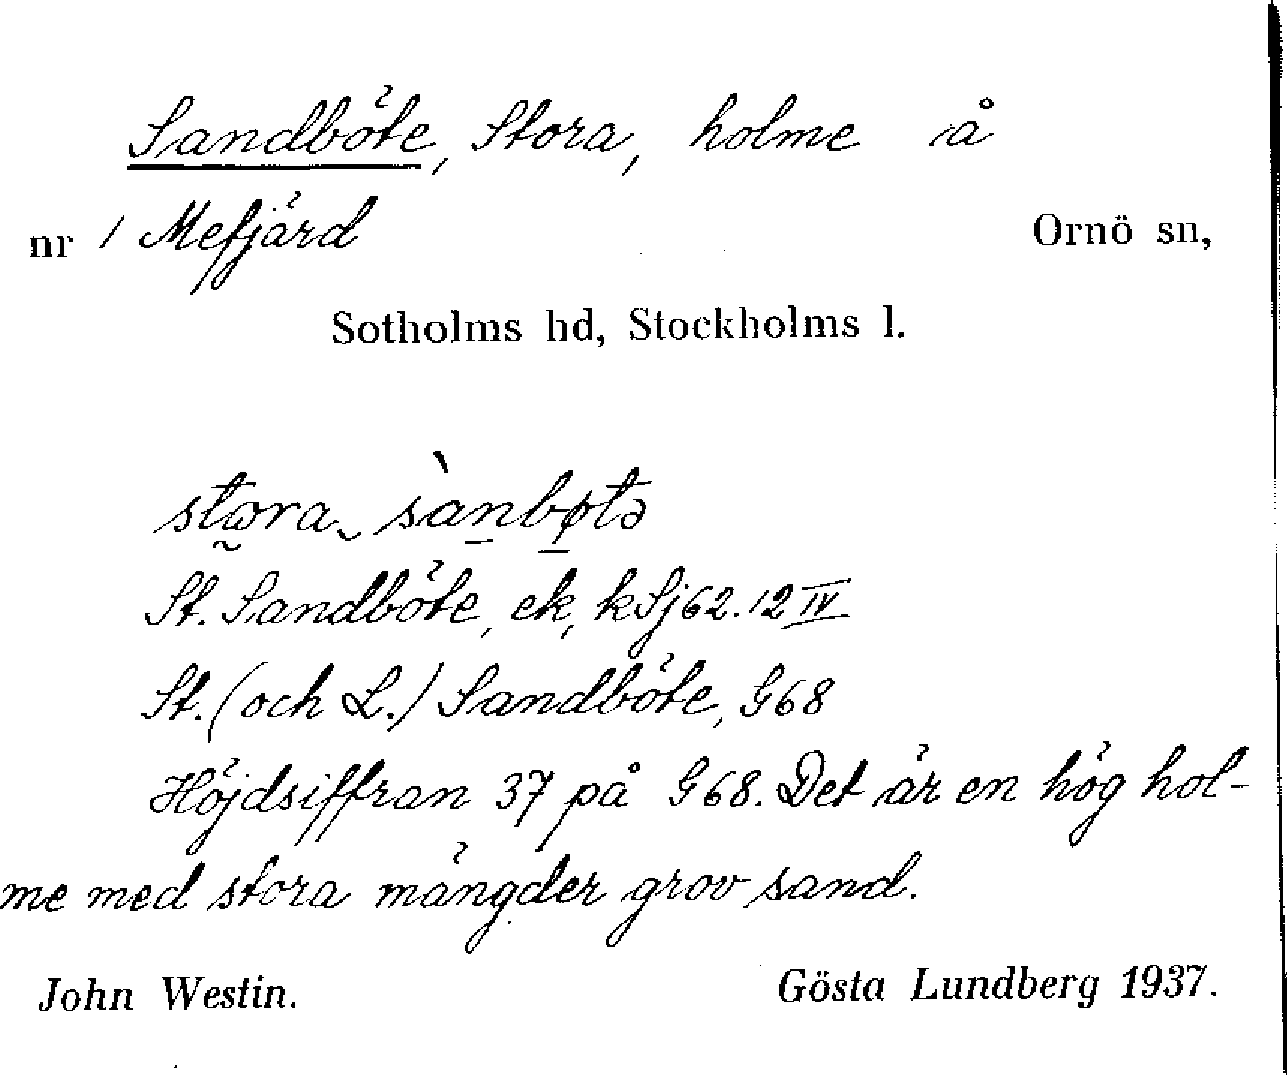 Sandböte, Stora, holme å
nr 1 Mefjärd Ornö sn,
Sotholms hd, Stockholms l.
stora sànbøtə
St. Sandböte, ek, kSj 62.12 IV
St. (och L.) Sandböte, G68
Höjdsiffran 37 på G68. Det är en hög hol-
me med stora mängder grov sand.
John Westin. Gösta Lundberg 1937.